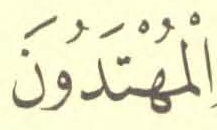 اِلْمُهْتَدُونَ